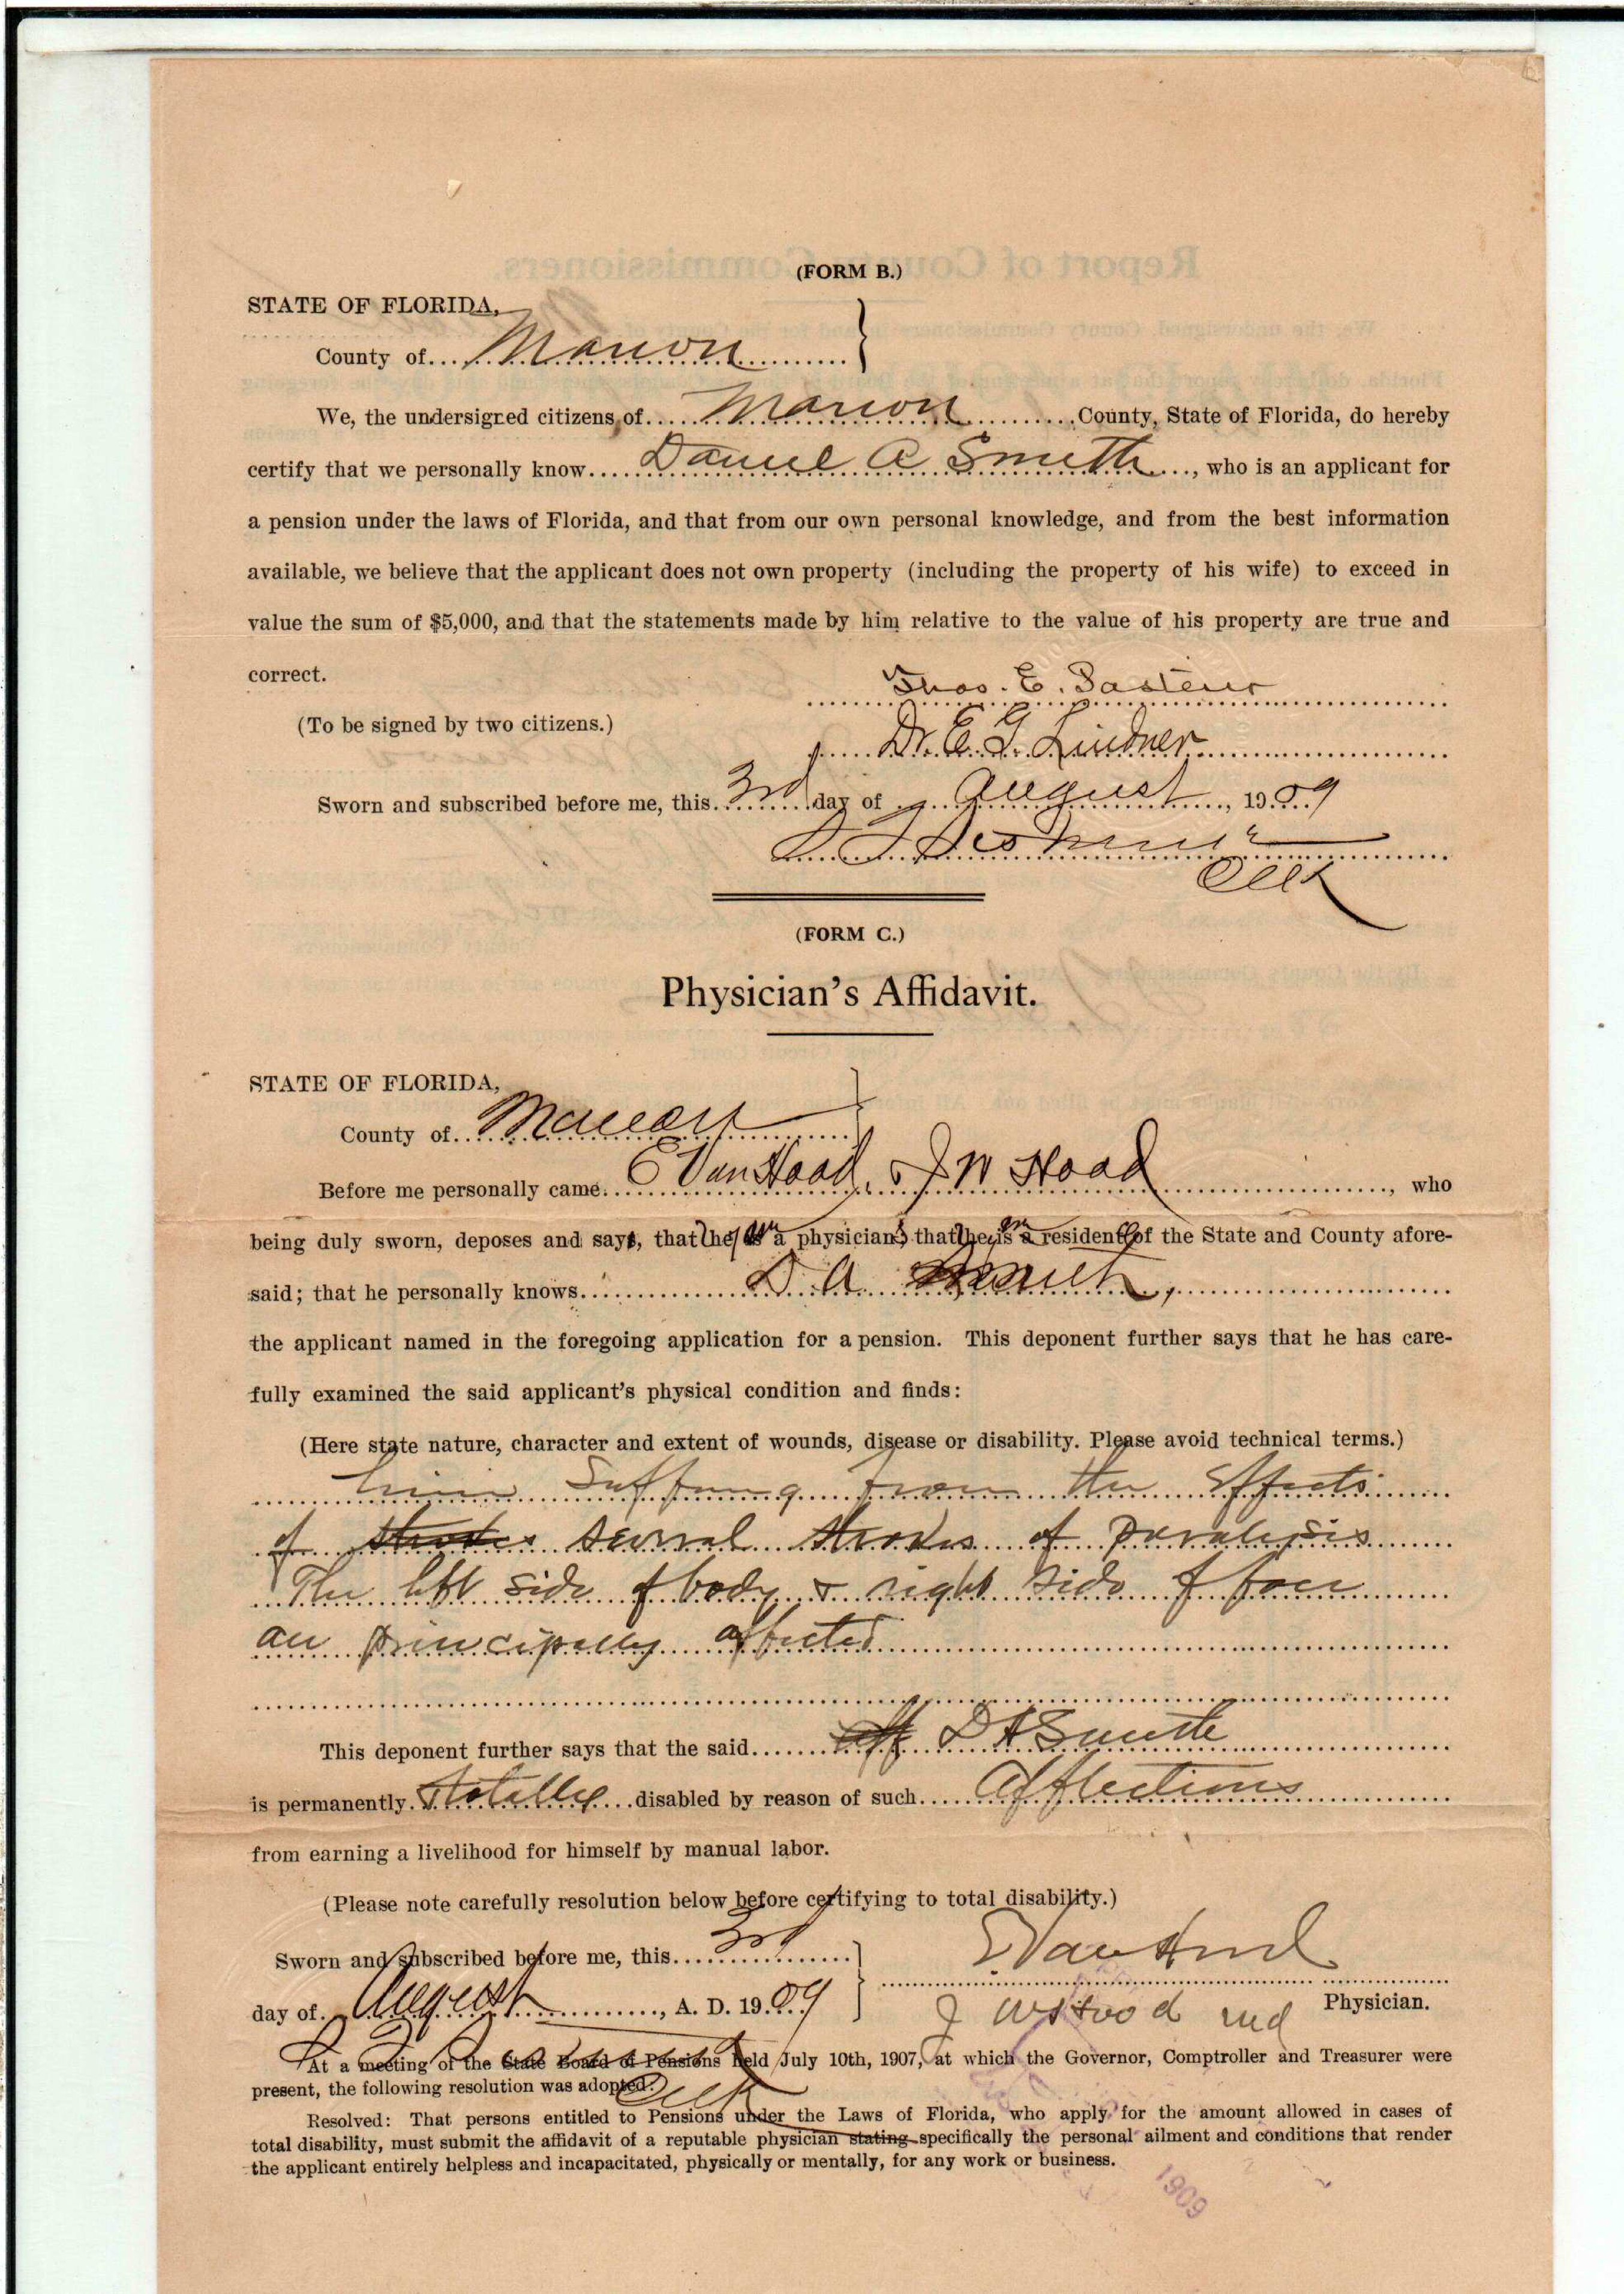 (FORM B.)
STATE OF FLORIDA,
County of Marion
We, the undersigned citizens of Marion County, State of Florida, do hereby
certify that we personally know Daniel A Smith, who is an applicant for
a pension under the laws of Florida, and that from our own personal knowledge, and from the best information
available, we believe that the applicant does not own property (including the property of his wife) to exceed in
value the sum of $5,000, and that the statements made by him relative to the value of his property are true and
correct.
Thos. E. Pasteur
(To be signed by two citizens.)
Dr. E. G. Lindner
Sworn and subscribed before me, this 3rd day of August, 1909
Clk
(FORM C.)
Physician's Affidavit.
STATE OF FLORIDA,
County of Marion
Before me personally came E Van Hood & J W Hood, who
being duly sworn, deposes and say, that they a physicians that they residents of the State and County afore-
said; that he personally knows D. A. Smith,
the applicant named in the foregoing application for a pension. This deponent further says that he has care-
fully examined the said applicant's physical condition and finds:
(Here state nature, character and extent of wounds, disease or disability. Please avoid technical terms.)
him Suffering from the Effects
of strokes several strokes of paralysis
The left side of body & right side of face
are principally affected
This deponent further says that the said D A Smith
is permanently totally disabled by reason of such afflections
from earning a livelihood for himself by manual labor.
(Please note carefully resolution below before certifying to total disability.)
Sworn and subscribed before me, this 3rd
E Van Hood
day of August, A. D. 1909
J W Hood md Physician.
At a meeting of the State Board of Pensions held July 10th, 1907, at which the Governor, Comptroller and Treasurer were
present, the following resolution was adopted:
Clk
Resolved: That persons entitled to Pensions under the Laws of Florida, who apply for the amount allowed in cases of
total disability, must submit the affidavit of a reputable physician stating specifically the personal ailment and conditions that render
the applicant entirely helpless and incapacitated, physically or mentally, for any work or business.
1909